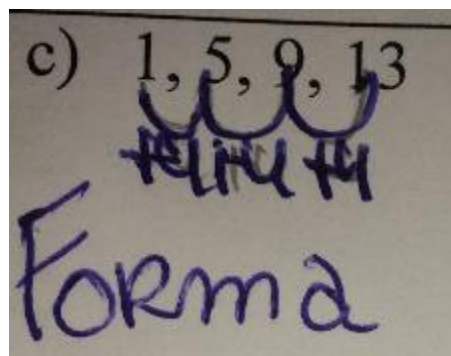 c) 1, 5, 9, 13
+4 +4 +4
Forma